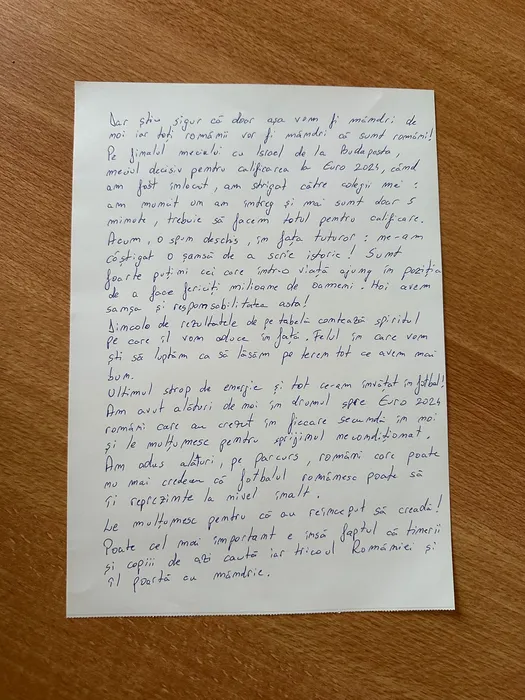 Dar știu sigur că doar așa vom fi mândri de
noi iar toți românii vor fi mândri că sunt români!
Pe finalul meciului cu Israel de la Budapesta,
meciul decisiv pentru calificarea la Euro 2024, când
am fost înlocuit, am strigat către colegii mei:
am muncit un an întreg și mai sunt doar 5
minute, trebuie să facem totul pentru calificare.
Acum, o spun deschis, în fața tuturor: ne-am
câștigat o șansă de a scrie istorie! Sunt
foarte puțini cei care într-o viață ajung în poziția
de a face fericiți milioane de oameni. Noi avem
șansa și responsabilitatea asta!
Dincolo de rezultatele de pe tabelă contează spiritul
pe care îl vom aduce în față. Felul în care vom
ști să luptăm ca să lăsăm pe teren tot ce avem mai
bun.
Ultimul strop de energie și tot ce-am învățat în fotbal!
Am avut alături de noi în drumul spre Euro 2024
români care au crezut în fiecare secundă în noi
și le mulțumesc pentru sprijinul necondiționat.
Am adus alături, pe parcurs, români care poate
nu mai credeau că fotbalul românesc poate să
îi reprezinte la nivel înalt.
Le mulțumesc pentru că au reînceput să creadă!
Poate cel mai important e însă faptul că tinerii
și copiii de azi caută iar tricoul României și
îl poartă cu mândrie.